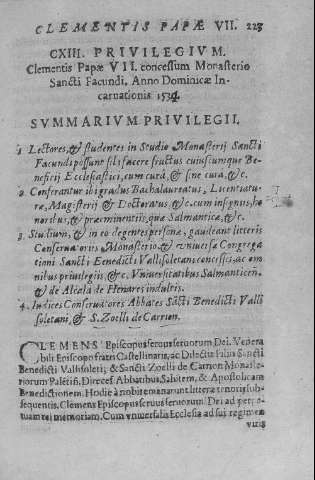 CLEMENTIS PAPÆ VII. 223
CXIII. PRIVILEGIVM.
Clementis Papæ VII. concessum Monasterio
Sancti Facundi, Anno Dominicæ In-
carnationis 1534.
SVMMARIVM PRIVILEGII.
1 Lectores, & studentes in Studio Monasterij Sancti
Facundi possunt sibi facere fructus cuiuscumque Be-
neficij Ecclesiastici, cum cura, & sine cura, &c.
2. Conferantur ibi gradus Bachalaureatus, Licentiatu-
ræ, Magisterij & Doctoratus, &c. cum insignijs, ho
noribus, & præeminentijs, quæ Salmanticæ, &c.
3. Studium, & in eo degentes personæ, gaudeant litteris
Conseruatorijs Monasterio, & vniuersæ Congrega
tioni Sancti Benedicti Vallisoletani concessis, ac om
nibus priuilegijs, &c. Vniuersitatibus Salmanticen.
& de Alcala de Henares indultis.
4. Iudices Conseruatores Abbates Sācti Benedicti Valli
soletani, & S. Zoelli de Carrion.
CLEMENS Episcopus seruus seruorum Dei. Venera
bili Episcopo fratri Castellinaris, ac Dilectis Filijs Sancti
Benedicti Vallisoleti; & Sancti Zoelli de Carrion Monaste-
riorum Palētiñ. Diœces. Abbatibus, Salutem, & Apostolicam
Benedictionem. Hodie à nobis emanarunt litteræ tenoris sub-
sequentis. Clemēs Episcopus seruus seruorum Dei ad perpe-
tuam rei memoriam. Cum vniuersalis Ecclesiæ ad sui regimen